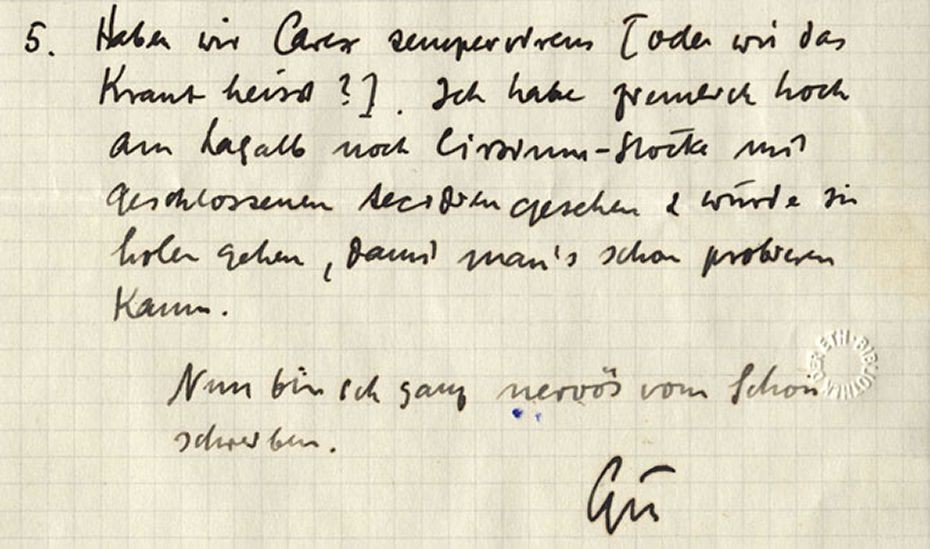 5. Haben wir Carex sempervirens [oder wie das
Kraut heisst?]. Ich habe ziemlich hoch
am Lagalb noch Cirsium-Stöcke mit
geschlossenen Aecidien gesehen & würde sie
holen gehen, damit man's schon probieren
kann.
Nun bin ich ganz nervös vom Schön
schreiben.
Gü
DER ETH·BIBLIOTHEK